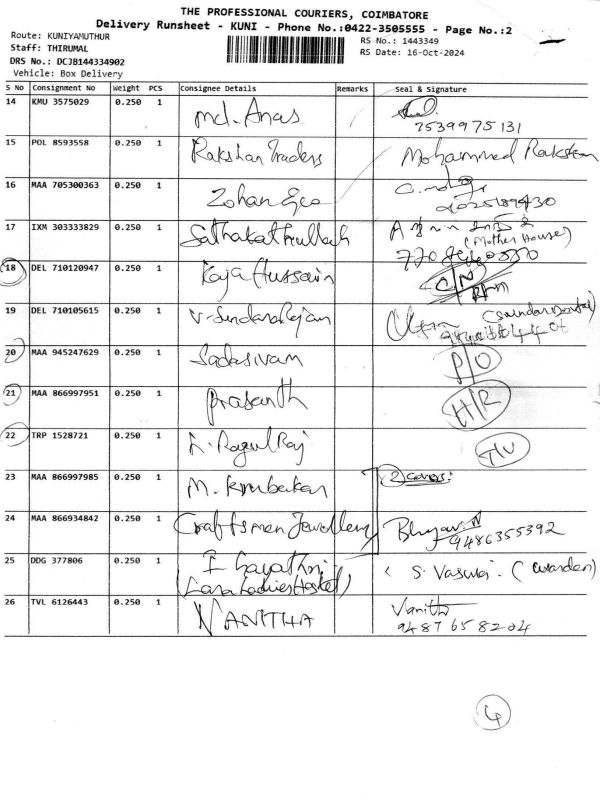 THE PROFESSIONAL COURIERS, COIMBATORE
Delivery Runsheet - KUNI - Phone No.:0422-3505555 - Page No.:2
Route: KUNIYAMUTHUR
RS No.: 1443349
Staff: THIRUMAL
RS Date: 16-Oct-2024
DRS No.: DCJB144334902
Vehicle: Box Delivery
S No Consignment No Weight PCS Consignee Details Remarks Seal & Signature
14 KMU 3575029 0.250 1 Md. Anas
2539975131
15 POL 8593558 0.250 1 Rakshan Traders Mohammed
16 MAA 705300363 0.250 1 Zohan
17 IXM 303333829 0.250 1 Sathakathullah
(Mother House)
18 DEL 710120947 0.250 1 Kaja Hussain C/N
19 DEL 710105615 0.250 1 V. Sundararajan
20 MAA 945247629 0.250 1 Sadasivam P/O
21 MAA 866997951 0.250 1 Prasanth H/R
22 TRP 1528721 0.250 1 Ragul Raj
23 MAA 866997985 0.250 1 M. 2 covers
24 MAA 866934842 0.250 1 Craftsmen Jewellery
9486355392
25 DDG 377806 0.250 1 Gayathri S. Vasuki (warden)
(Lara Ladies Hostel)
26 TVL 6126443 0.250 1 VANITHA Vanitha
9487658204
4